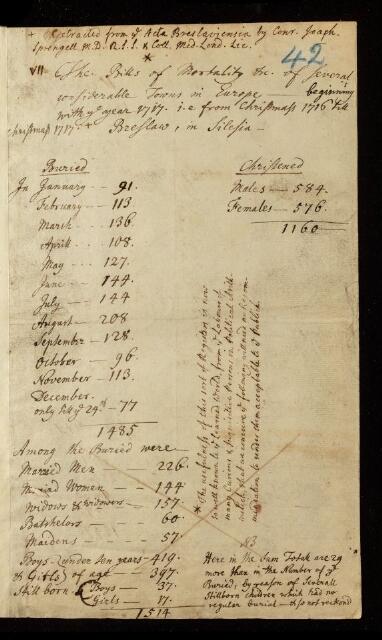 + Extracted from yᵉ Acta Breslaviensia by Conr. Joseph.
Sprengell M.D. R.S.S. & Coll. Med. Lond. Lic.
42
VII
*
The Bills of Mortality &c. of several
considerable Towns in Europe — beginning
with yᵉ year 1717. i.e. from Christmass 1716 till
Christmass 1717. +
Breslaw, in Silesia —
Buried
In January — 91.
February — 113
March ... 136
Aprill ... 108.
May ... 127.
June ... 144.
July — 144
August — 208
September — 128.
October — 96.
November — 113.
December.
only till yᵉ 24th — 77
1485
Christened
Males — 584.
Females — 576.
1160
Among the Buried were
Married Men — 226.
Married Women — 144
Widows & Widowers — 157.
Batshelors — 60.
Maidens — 57.
Boys (under ten years — 419.
& Girls) of age — 397.
Still born (Boys — 37.
Girls — 17.
1514
* The usefulness of this sort of Registers is now
so well known to yᵉ Learned World, from yᵉ Labours of
many Curious & Inquisitive Persons in Political Arith-
metick, that we conceive yᵉ following will need no Recom-
mendation to render them acceptable to yᵉ Publick.
NB
Here in the Sum Total are 29
more than in the Number of yᵉ
Buried, by reason of Severall
Stillborn Children which had no
regular burial — & so not reckond